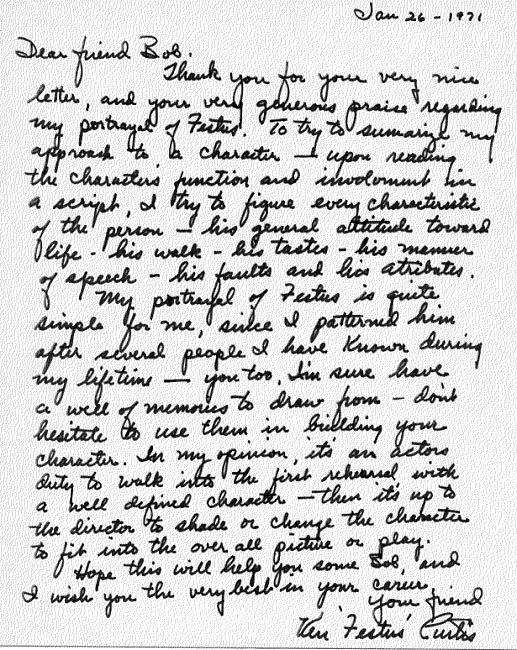 Jan 26 - 1971
Dear friend Bob.
Thank you for your very nice
letter, and your very generous praise regarding
my portrayal of Festus. To try to sumarize my
approach to a character — upon reading
the characters function and involvment in
a script, I try to figure every characteristic
of the person — his general attitude toward
life - his walk - his tastes - his manner
of speech - his faults and his atributes.
My portrayal of Festus is quite
simple for me, since I patterned him
after several people I have known during
my lifetime — you too, I'm sure have
a well of memories to draw from - don't
hesitate to use them in building your
character. In my opinion, it's an actors
duty to walk into the first rehearsal with
a well defined character — then it's up to
the director to shade or change the character
to fit into the over all picture or play.
Hope this will help you some Bob, and
I wish you the very best in your career.
Your friend
Ken 'Festus' Curtis